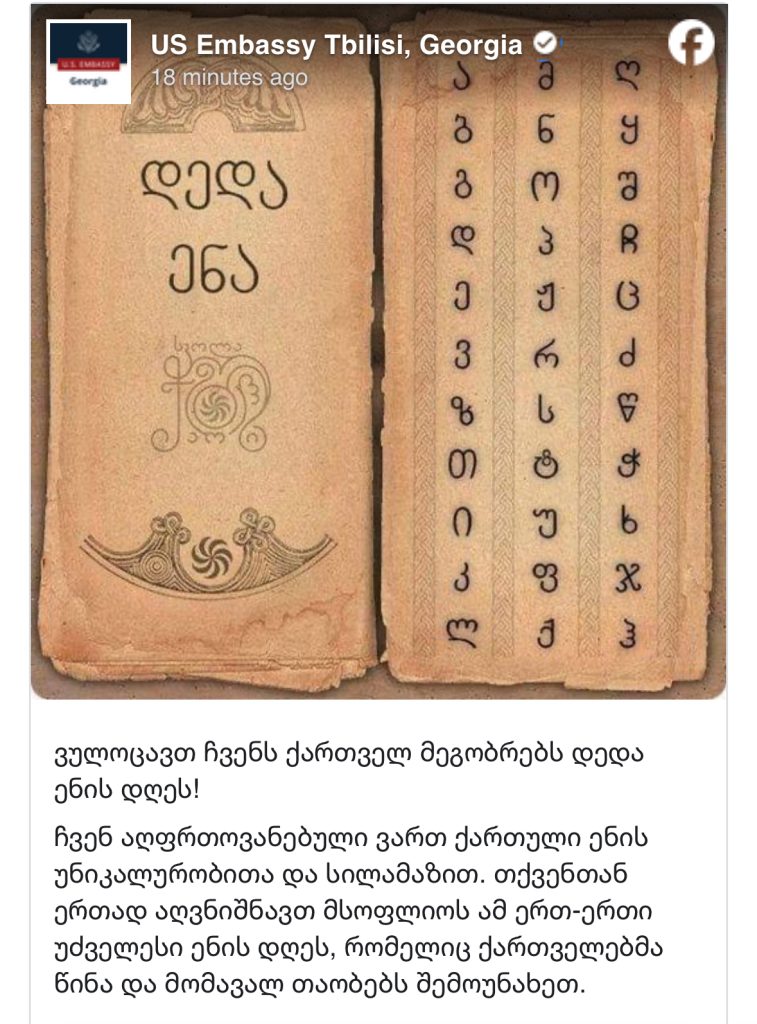 US Embassy Tbilisi, Georgia
18 minutes ago
U.S. EMBASSY
Georgia
დედა
ენა
სკოლა
ა მ ღ
ბ ნ ყ
გ ო შ
დ პ ჩ
ე ჟ ც
ვ რ ძ
ზ ს წ
თ ტ ჭ
ი უ ხ
კ ფ ჯ
ლ ქ ჰ
ვულოცავთ ჩვენს ქართველ მეგობრებს დედა
ენის დღეს!
ჩვენ აღფრთოვანებული ვართ ქართული ენის
უნიკალურობითა და სილამაზით. თქვენთან
ერთად აღვნიშნავთ მსოფლიოს ამ ერთ-ერთი
უძველესი ენის დღეს, რომელიც ქართველებმა
წინა და მომავალ თაობებს შემოუნახეთ.